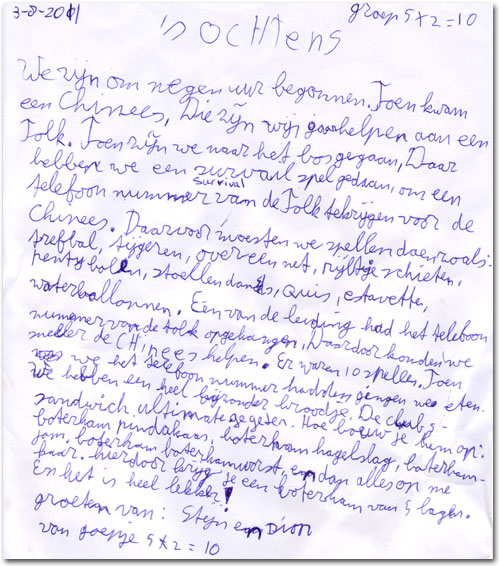 3-8-2011
groep 5 x 2 = 10
's OCHTENS
We zijn om negen uur begonnen. Toen kwam
een Chinees, Die zijn wij gaan helpen aan een
Tolk. Toen zijn we naar het bos gegaan, Daar
hebben we een survail spel gedaan, om een
survival
telefoon nummer van de Tolk te krijgen voor de
Chinees. Daarvoor moesten we spellen doen zoals:
trefbal, tijgeren, over een net, rijltje schieten,
penty bolen, stoellen dans, Quis, estavette,
waterballonnen. Een van de leiding had het telefoon
nummer van de tolk opgehangen, Daardoor konden we
sneller de CHinees helpen. Er waren 10 spellen. Toen
we het telefoon nummer hadden gingen we eten.
We hebben een heel bijzonder broodje, De club 5-
sandwich ultimate gegeten. Hoe bouw je hem op:
boterham pindakaas, boterham hagelslag, boterham-
jam, boterham boterhamworst, en dan alles op me
kaar. hierdoor krijg je een boterham van 5 lagen.
En het is heel lekker!
groeten van: Stijn en Dion
van goepje 5 x 2 = 10